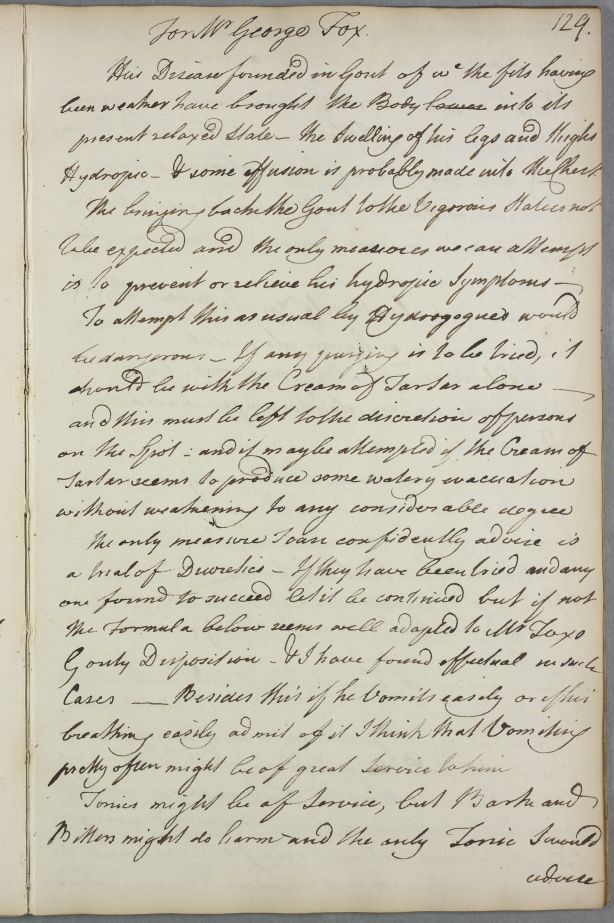 For Mr George Fox.
129.
His Disease founded in Gout of wc the fits having
been weaker have brought the Body lower into its
present relaxed State – the Swelling of his legs and thighs
Hydropic – & some effusion is probably made into the Chest.
The bringing back the Gout to the Vigorous State is not
to be expected and the only measures we can attempt
is to prevent or relieve his hydropic Symptoms –
To attempt this as usual by Hydrogogues would
be dangerous – If any purging is to be tried, it
should be with the Cream of Tartar alone –
and this must be left to the discretion of persons
on the Spot : and it may be attempted if the Cream of
Tartar seems to produce some watery evacuation
without weakening to any considerable degree
The only measure I can confidently advise is
a trial of Diuretics – If they have been tried and any
one found to succeed let it be continued but if not
the Formula below seems well adapted to Mr Foxs
Gouty Disposition – & I have found effectual in such
Cases — Besides this if he Vomits easily or if his
breathing easily admit of it I think that Vomiting
pretty often might be of great Service to him
Tonics might be of Service, but Bark and
Bitters might do harm and the only Tonic I would
advise